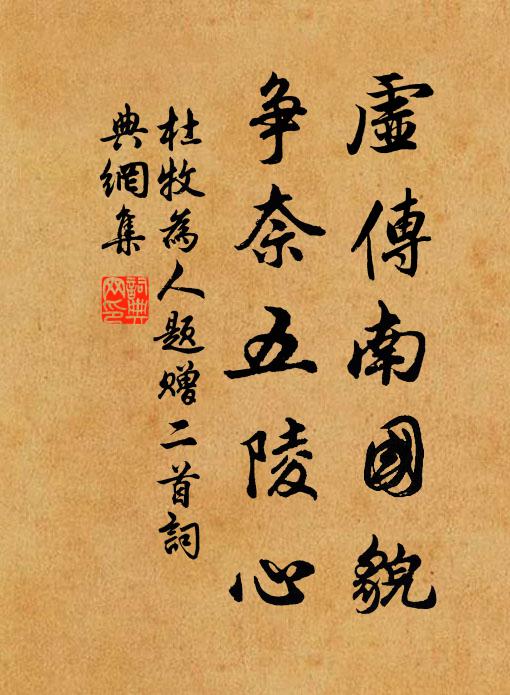 虛傳南國貌
爭奈五陵心
杜牧為人題贈二首詞
典網集
詞典
网印